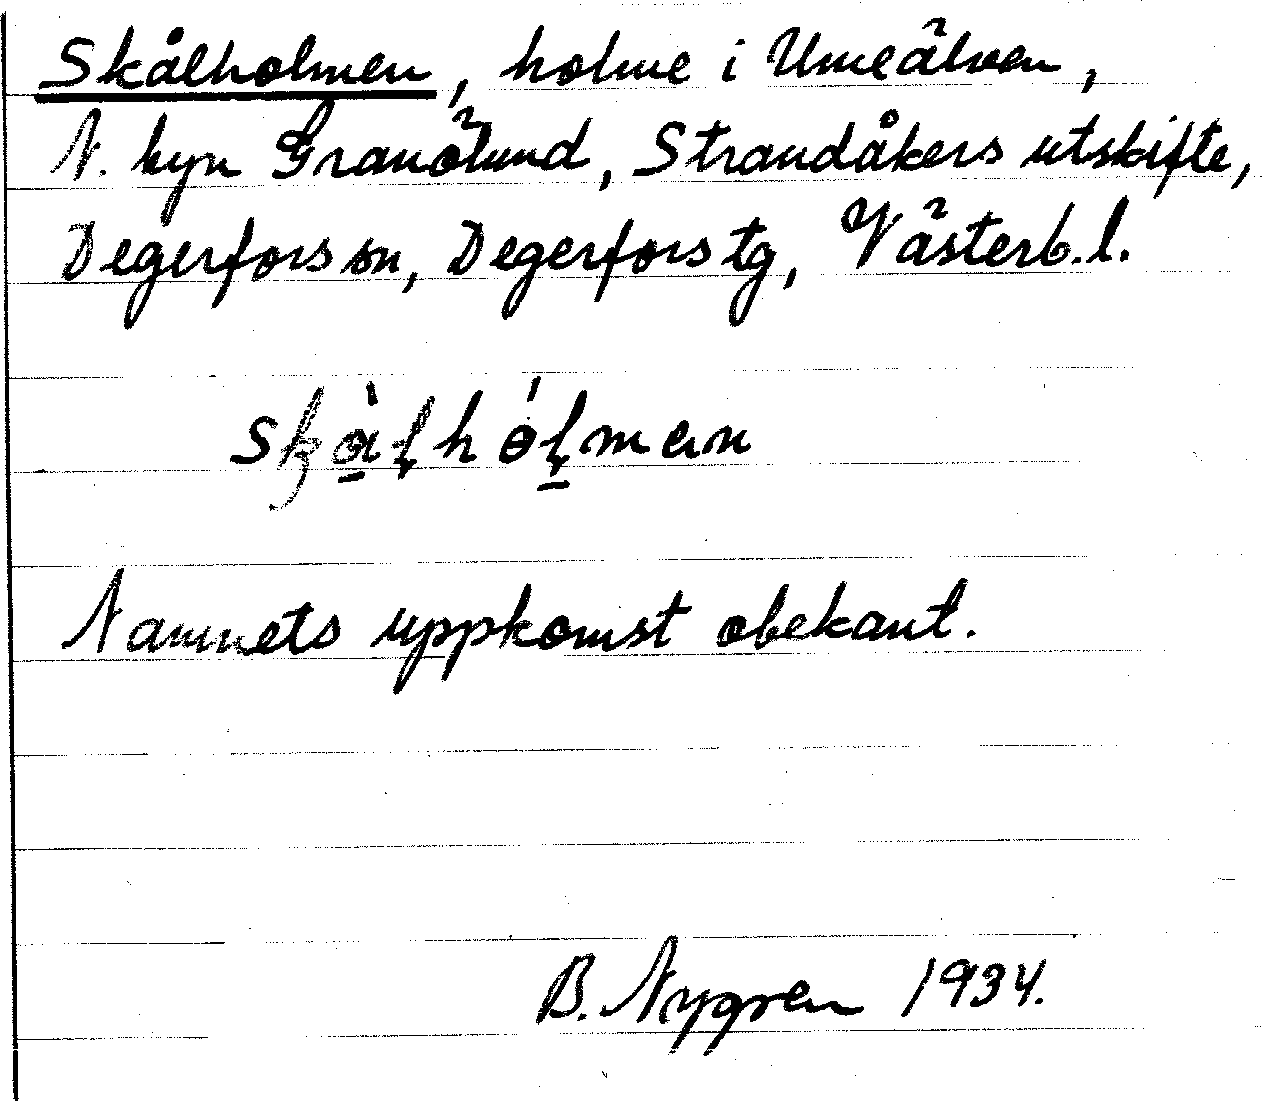 Skålholmen, holme i Umeälven,
N. byn Granölund, Strandåkers utskifte,
Degerfors sn, Degerfors tg, Västerb. l.
Namnets uppkomst obekant.
B. Nygren 1934.